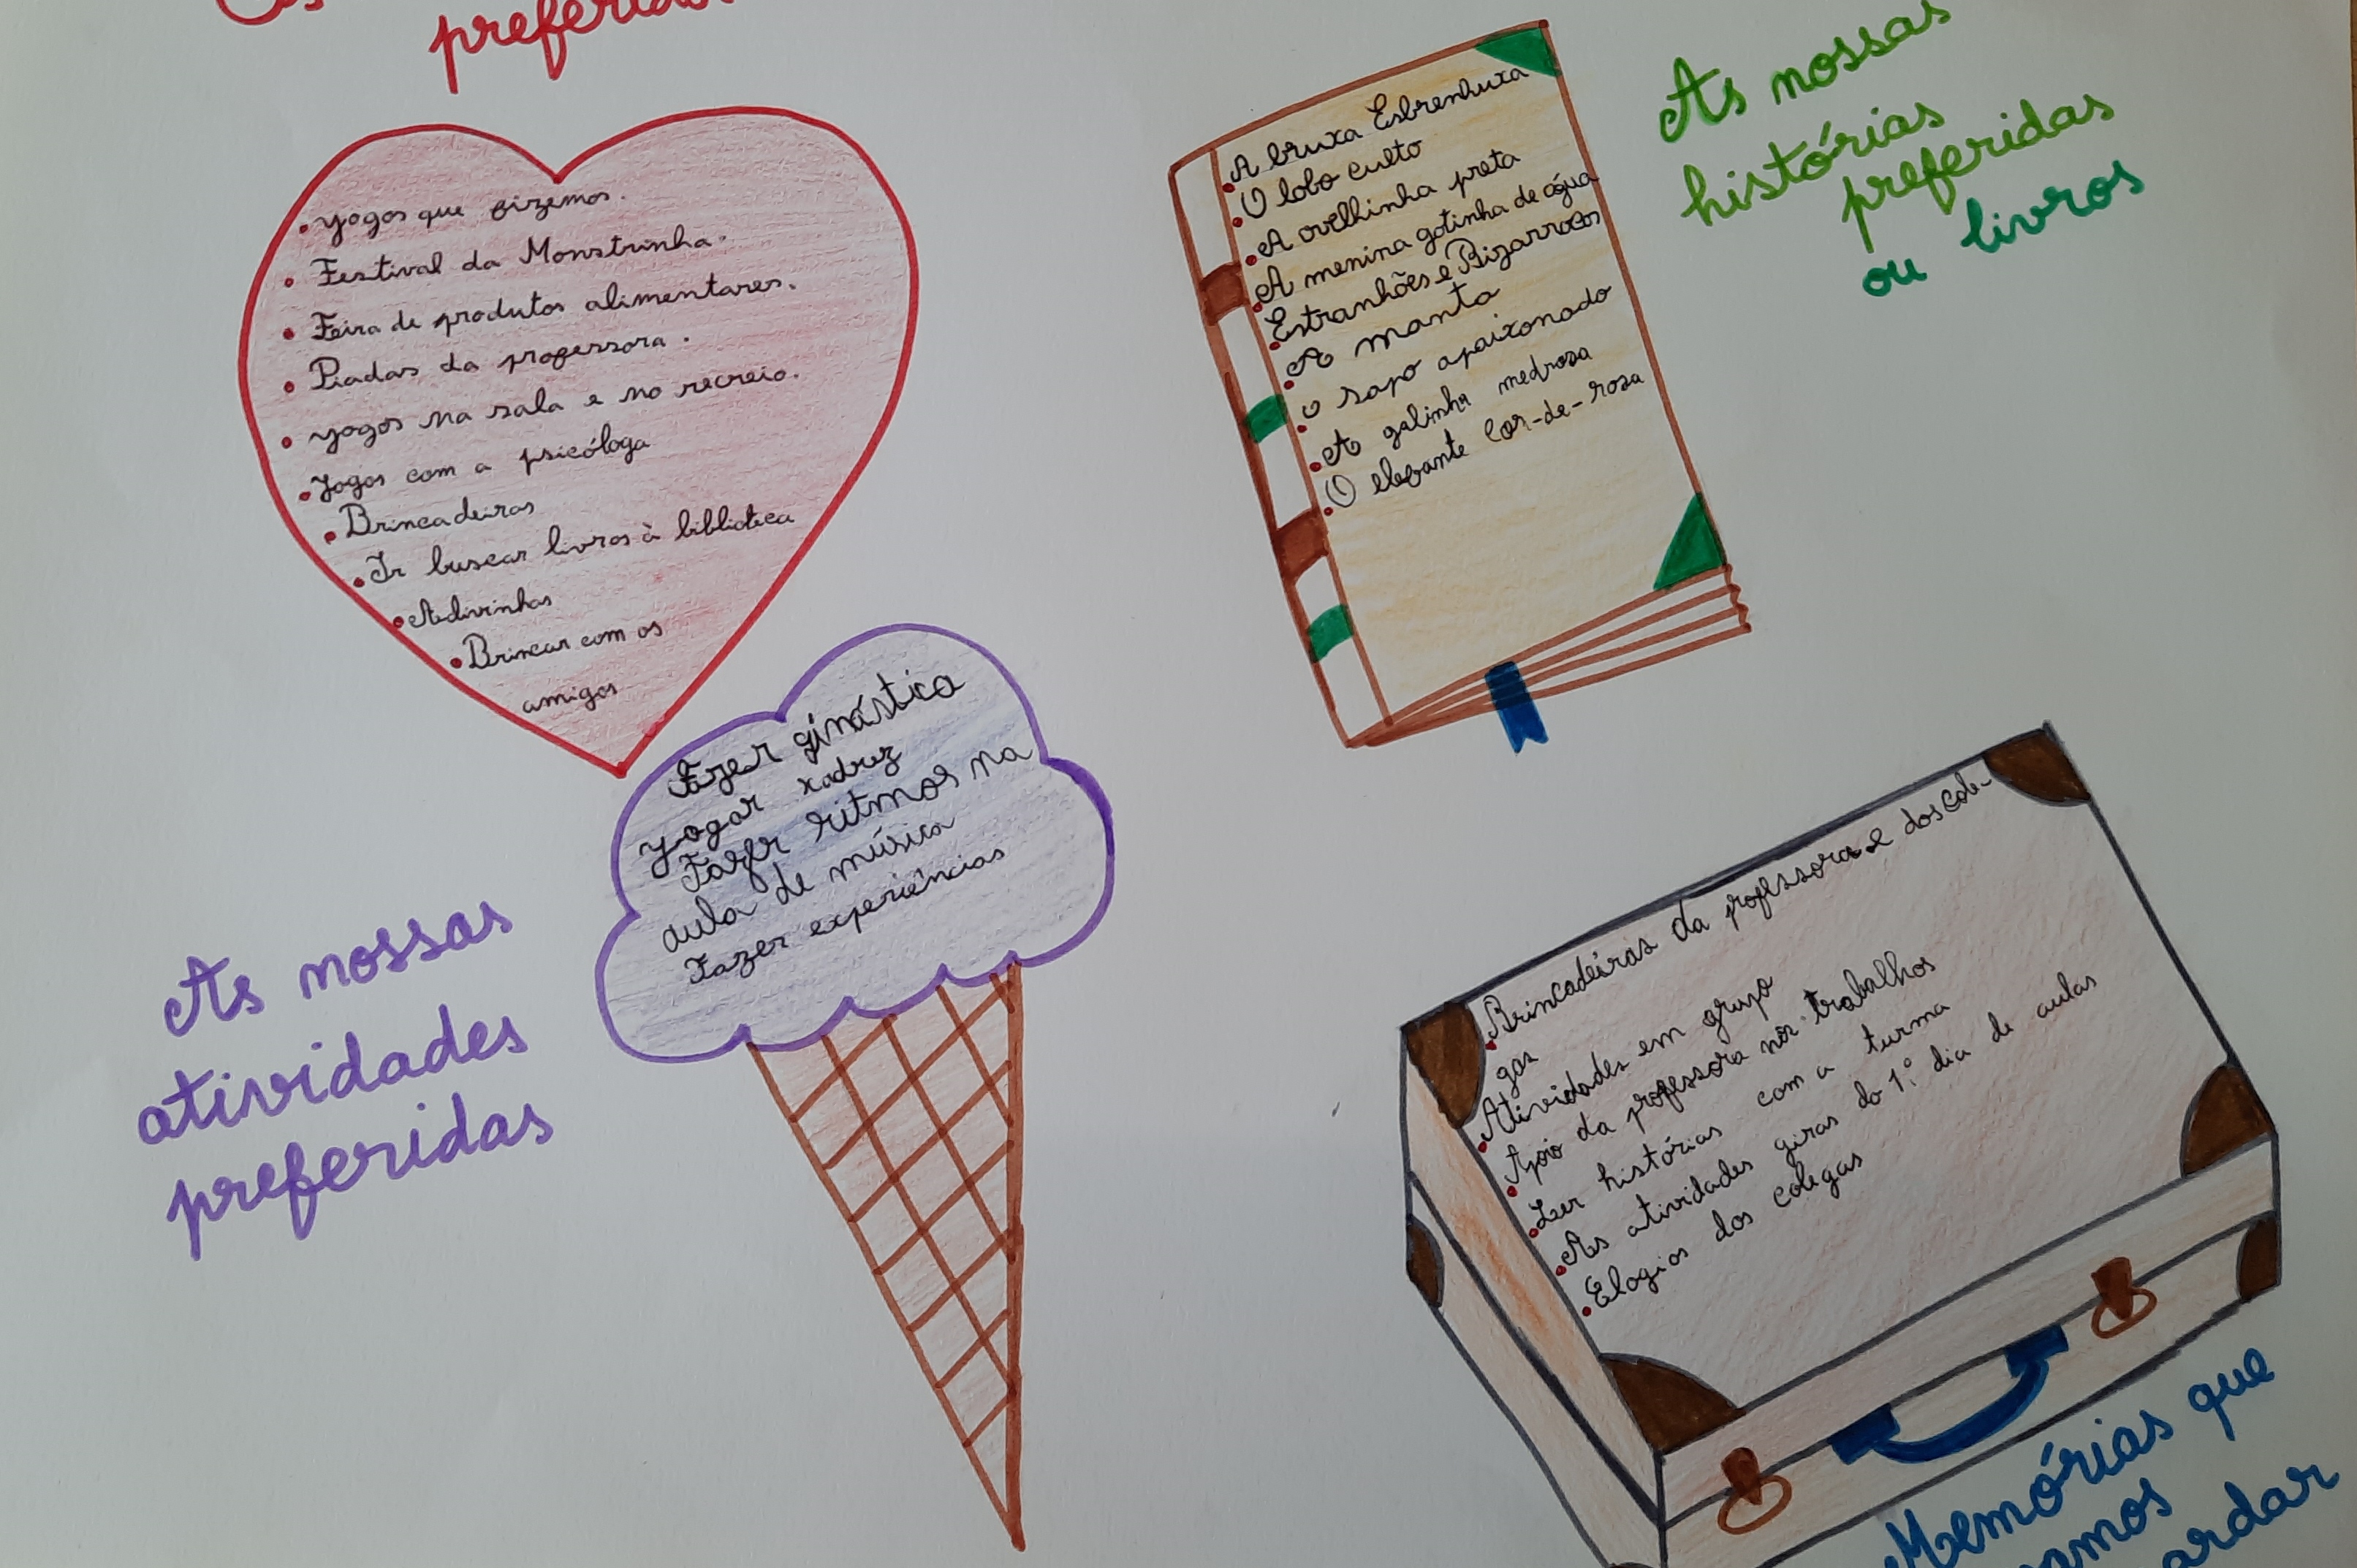 preferidos
• Jogos que fizemos.
• Festival da Monstrinha.
• Feira de produtos alimentares.
• Piadas da professora.
• Jogos na sala e no recreio.
• Jogos com a psicóloga
• Brincadeiras
• Ir buscar livros à biblioteca
• Adivinhas
• Brincar com os
amigos
As nossas
histórias
preferidas
ou livros
• A bruxa Esbrenhuxa
• O lobo culto
• A ovelhinha preta
• A menina gotinha de água
• Estranhões e Bizarrocos
• A manta
• O sapo apaixonado
• A galinha medrosa
• O elefante cor-de-rosa
As nossas
atividades
preferidas
Fazer ginástica
Jogar xadrez
Fazer ritmos na
aula de música
Fazer experiências
• Brincadeiras da professora e dos cole-
gas
• Atividades em grupo
• Apoio da professora nos trabalhos
• Ler histórias com a turma
• As atividades giras do 1.º dia de aulas
• Elogios dos colegas
Memórias que